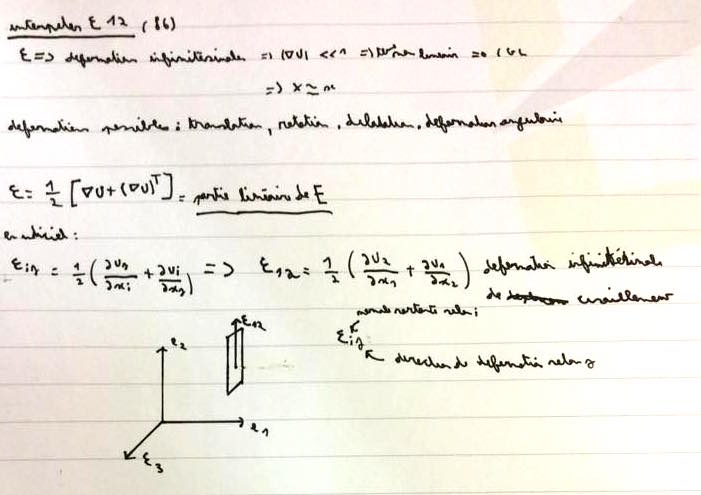 interpeter E 12 (86)
ε => deformation infinitésimales => |∇U| << 1 => terme lineair
=> X ≃ x
deformations possibles : translation, rotation, dilatation, deformation angulaire
ε = 1/2 [∇U + (∇U)^T] = partie linéaire de E
en indiciel :
ε_ij = 1/2 (∂U_j/∂x_i + ∂U_i/∂x_j) => ε_12 = 1/2 (∂U_2/∂x_1 + ∂U_1/∂x_2) deformation infinitésimale
de cisaillement
normale sortante selon i
ε_ij
direction de deformation selon j
e_2
ε_12
e_1
ε_3